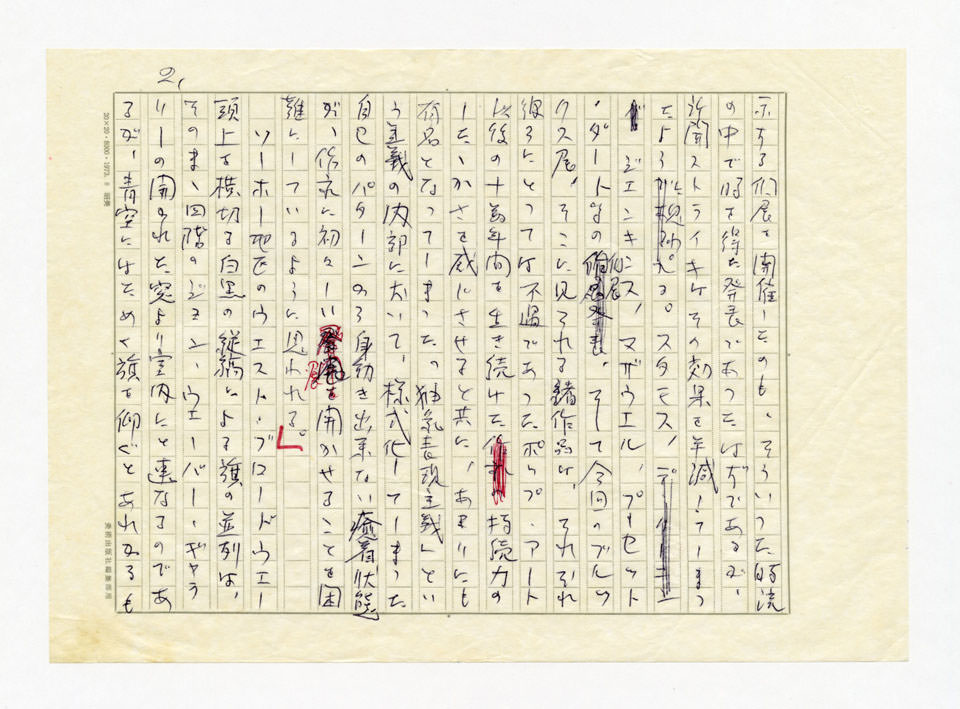 2,
示する個展を開催したのも、そういった時流
の中で時を得た発表であったはずであるが、
新聞ストライキはその効果を半減してしまっ
たようだ。スタモス、
ジェンキンス、マザウエル、プーセット
・ダートなの個展、そして今回のブルッ
クス展、そこに見られる諸作品は、それぞれ
彼らにとっては不遇であったポップ・アート
以後の十数年間を生き続けた持続力の
したゝかさを感じさせると共に、あまりにも
有名となってしまった「抽象表現主義」とい
う主義の内部において、様式化してしまった
自己のパターンのろ身動き出来ない癒着状態
が、作家に初々しい展開を開かせることを困
難にしているように思われる。
ソーホー地区のウエスト・ブロードウエー
頭上を横切る白黒の縦縞による旗の並列は、
そのまゝ四階のジョン・ウエーバー・ギャラ
リーの開かれた窓より室内にと連なるのであ
るが、青空にはためく旗を仰ぐとあれかるも
20×20・8000・1973.
美術出版社編集部用